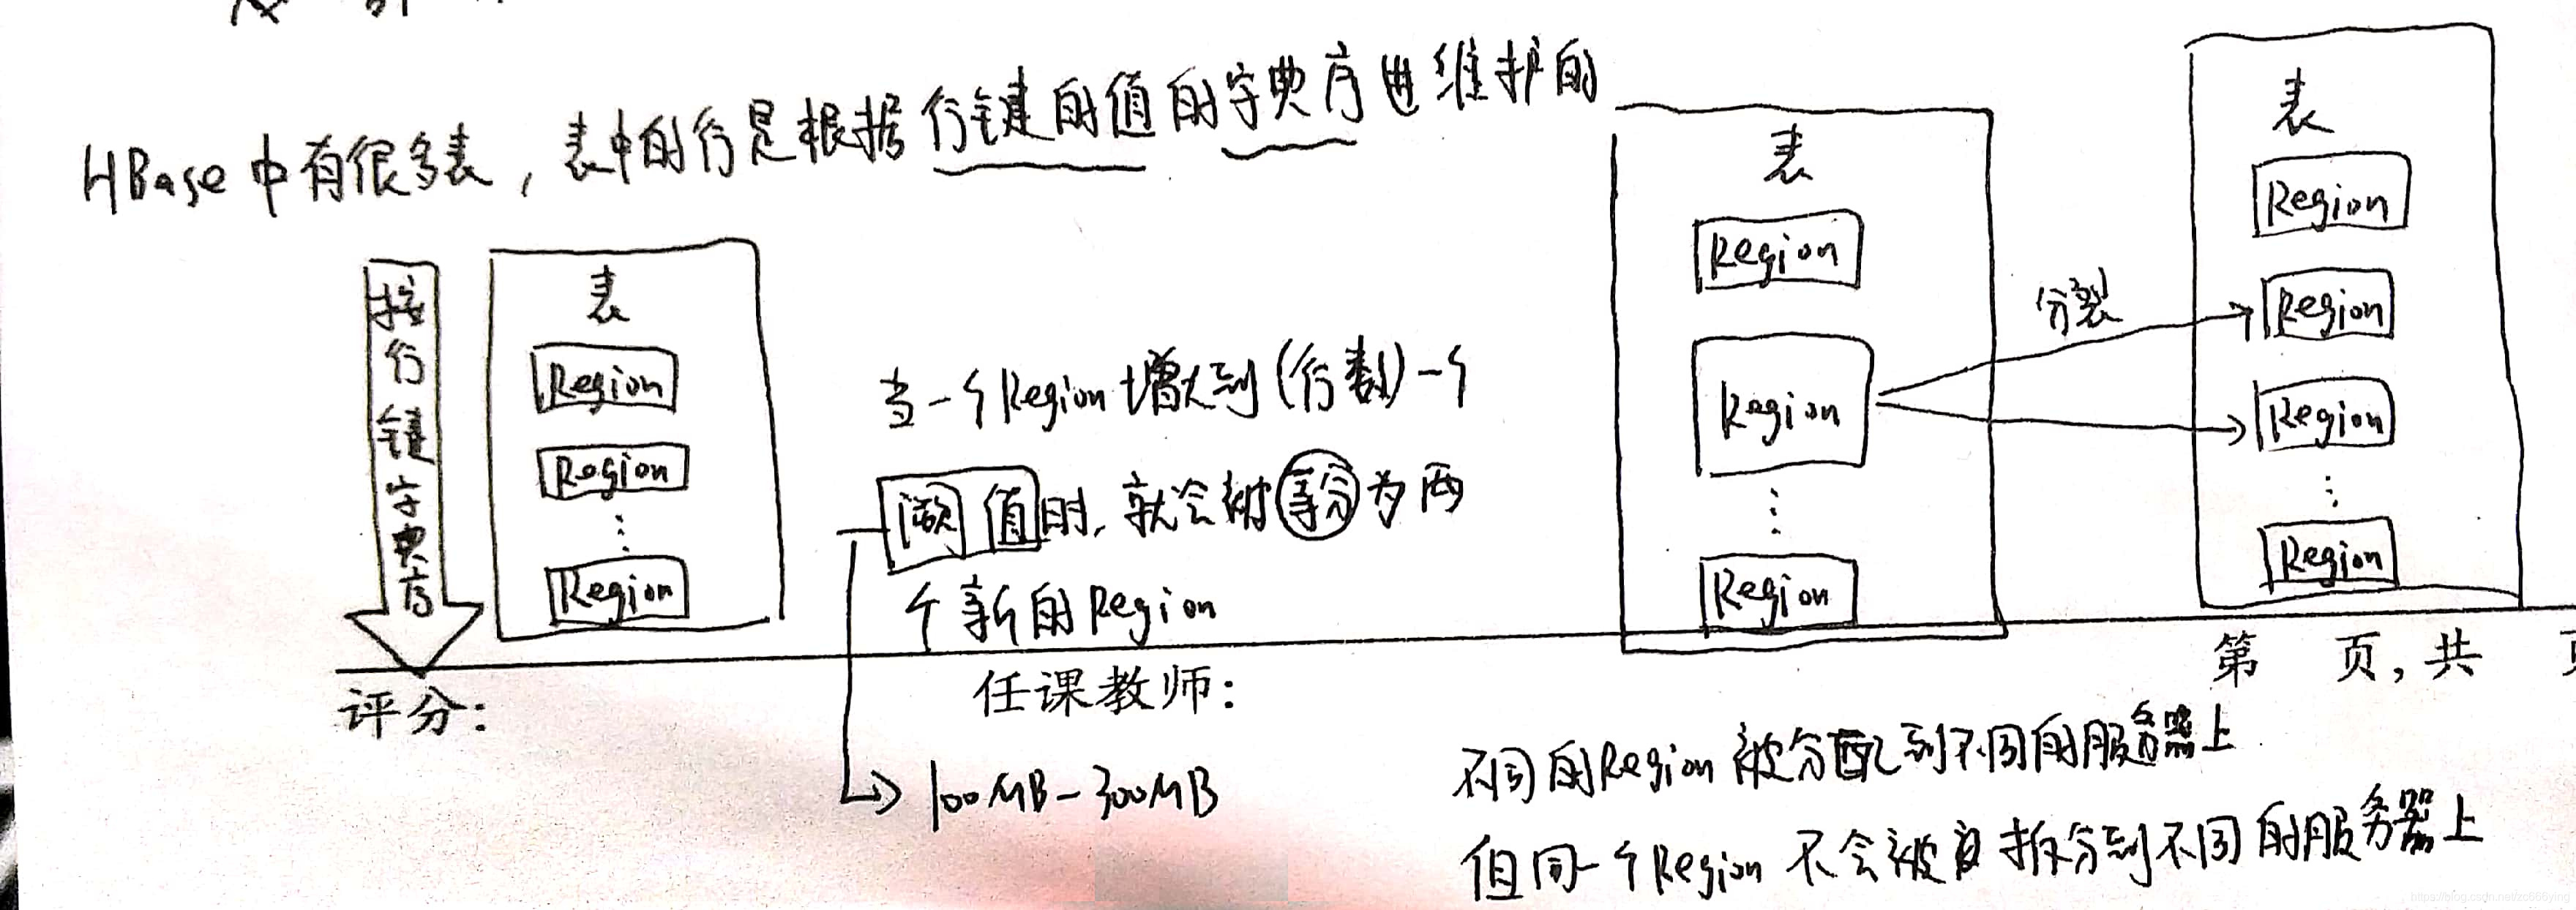 HBase中有很多表，表中的行是根据行键的值的字典序进维护的
按行键字典序
表
Region
Region
⋮
Region
当一个Region增大到(行数)一个
阈值时，就会被等分为两
个新的Region
100MB-300MB
表
Region
Region
⋮
Region
分裂
表
Region
Region
Region
⋮
Region
第 页，共
评分：
任课教师：
不同的Region被分配到不同的服务器上
但同一个Region不会被拆分到不同的服务器上